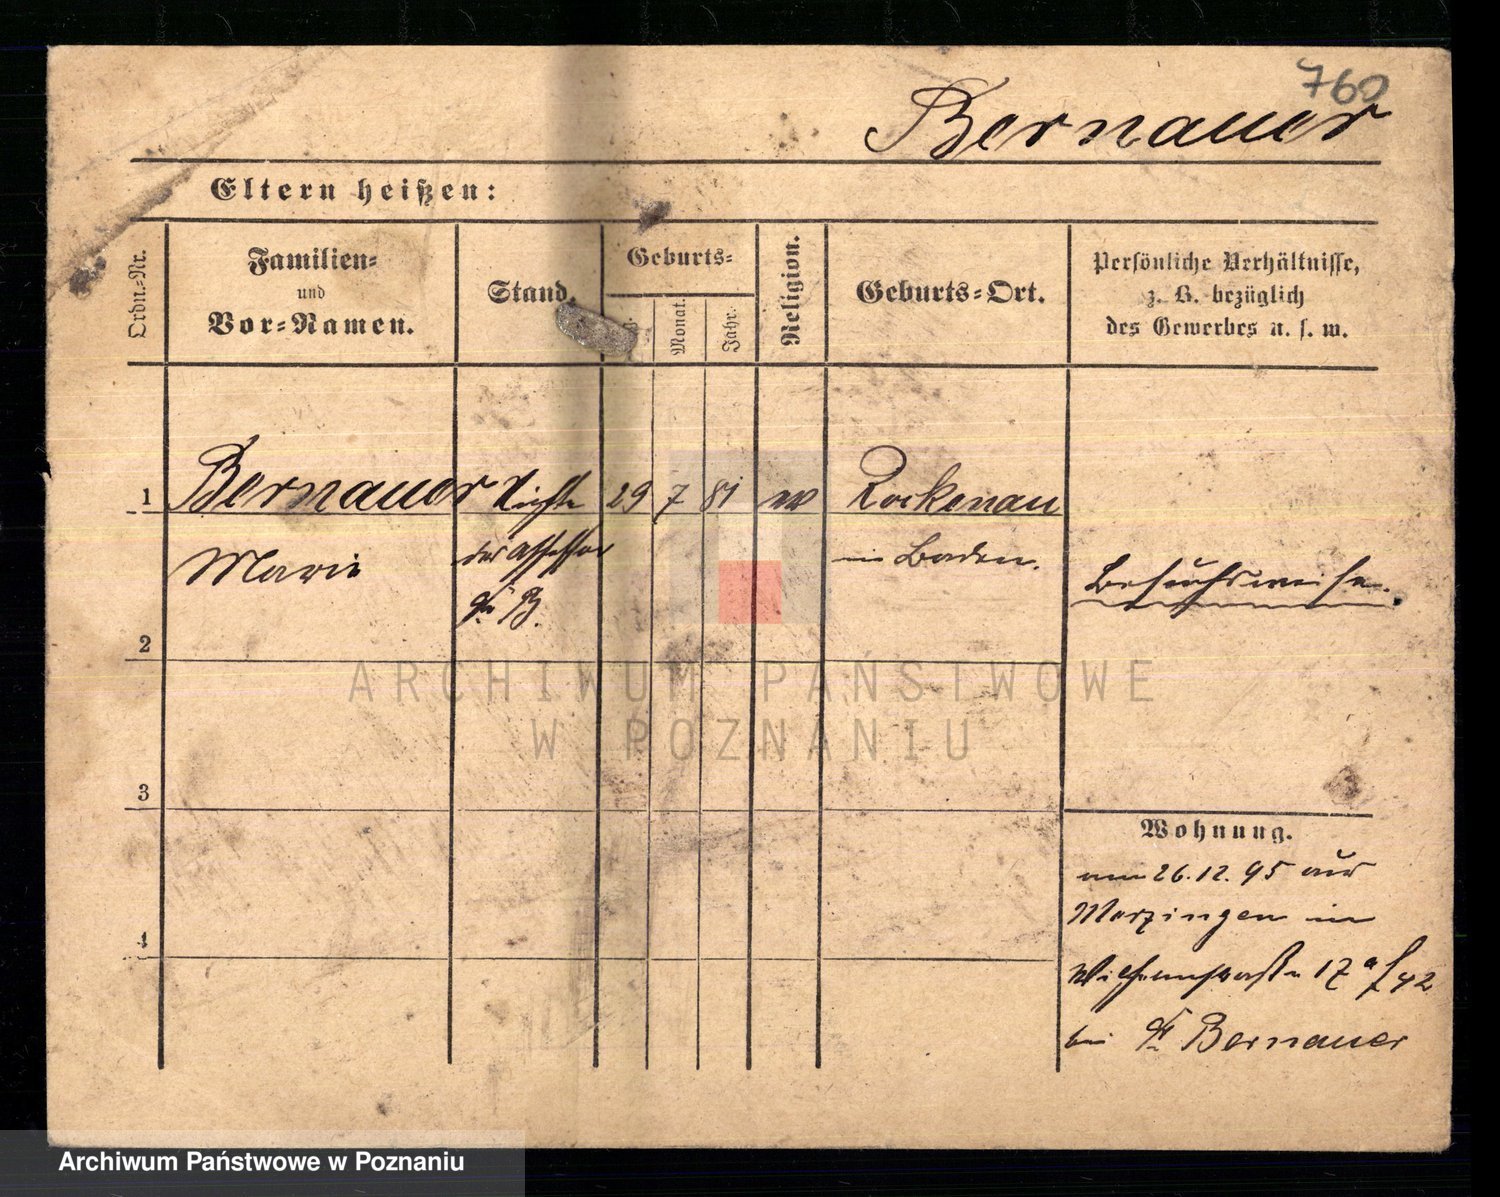 760
Bernauer
Eltern heißen:
Ordn.-Nr.
Familien-
und
Vor-Namen.
Stand.
Geburts-
Monat.
Jahr.
Religion.
Geburts-Ort.
Persönliche Verhältnisse,
z. B. bezüglich
des Gewerbes u. s. w.
1 Bernauer Nichte 29 7 81 Rockenau
Marie des Assessor in Baden. Besuchsweise.
B.
2
ARCHIWUM PAŃSTWOWE
W POZNANIU
3
Wohnung.
26.12.95 aus
4
Merzingen in
Wilhelmstraße 17
bei Bernauer
Archiwum Państwowe w Poznaniu